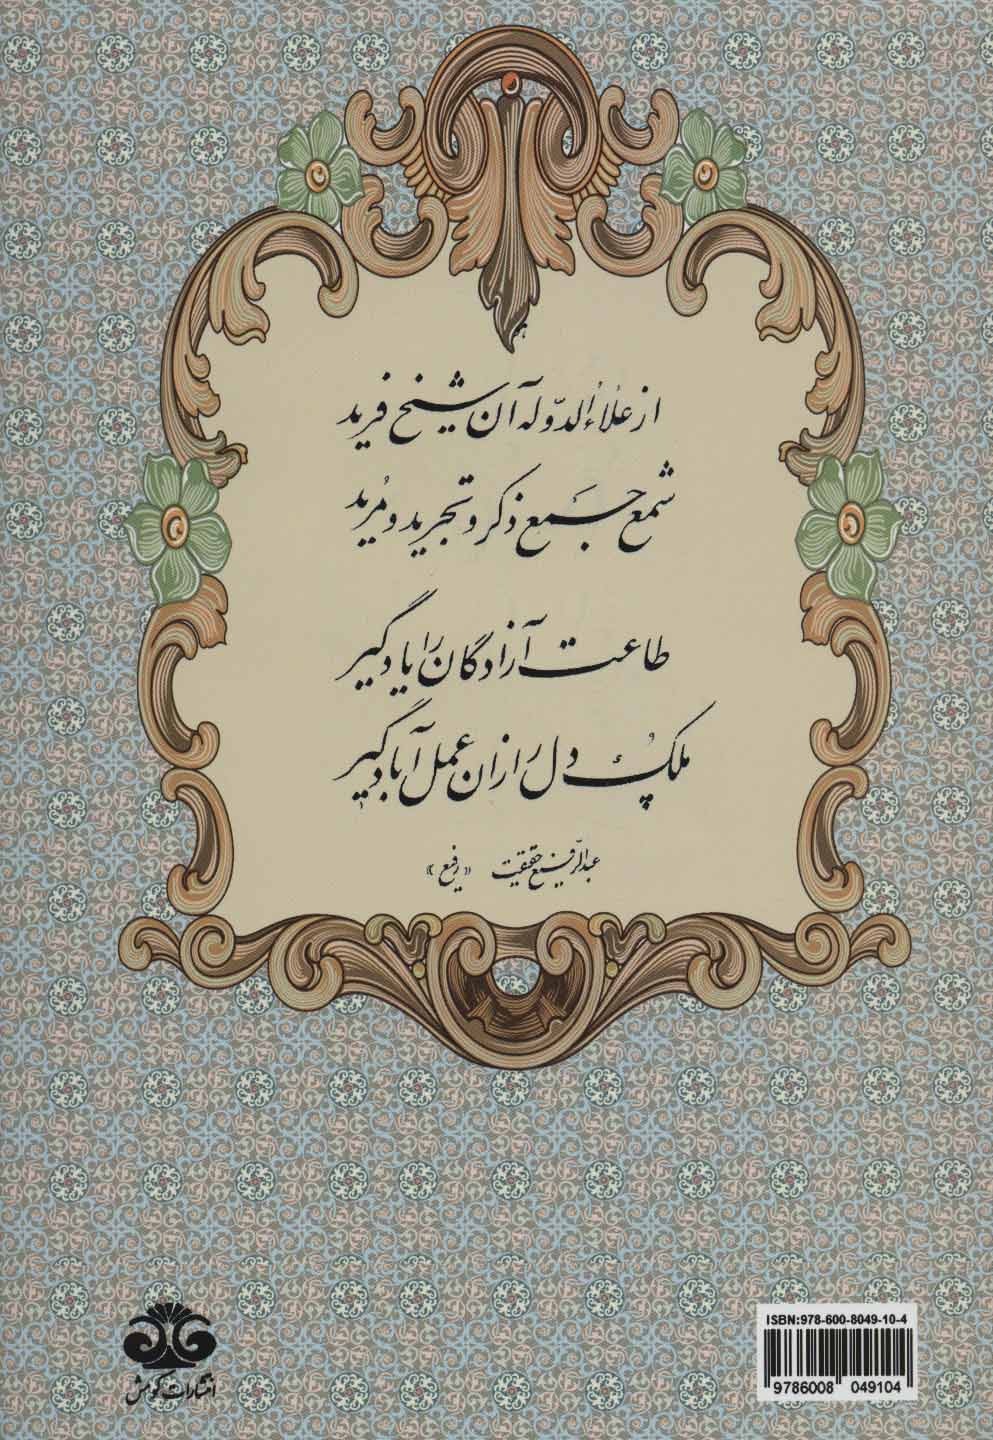 از علاءُالدّوله آن شیخ فرید
شمع جمع ذکر و تجرید و مُرید
طاعت آزادگان را یاد گیر
مُلک دل را زان عمل آباد گیر
عبدالرّفیع حقیقت «رفیع»
انتشارات کومش
ISBN:978-600-8049-10-4
9786008 049104